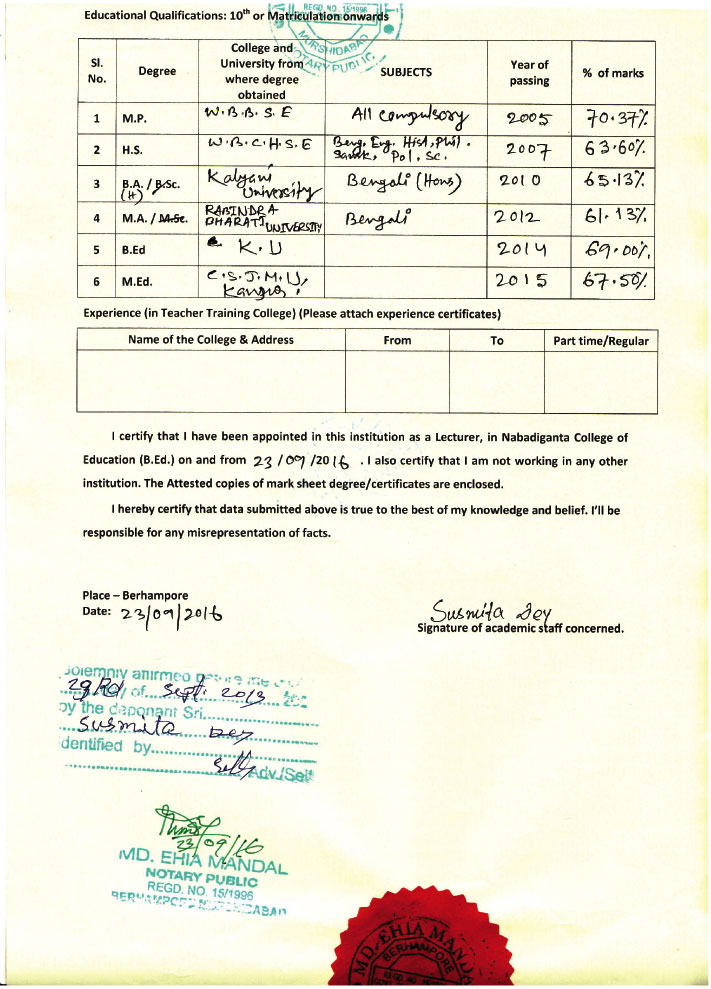 REGD. NO. 15/1996
Educational Qualifications: 10th or Matriculation onwards
MURSHIDABAD
NOTARY PUBLIC
Sl. No. Degree College and University from where degree obtained SUBJECTS Year of passing % of marks
1 M.P. W.B.B.S.E All compulsory 2005 70.37%
2 H.S. W.B.C.H.S.E Beng, Eng, Hist, Phil. Sansk, Pol, Sc. 2007 63.60%
3 B.A. / B.Sc. (H) Kalyani University Bengali (Hons) 2010 65.13%
4 M.A. / M.Sc. RABINDRA BHARATI UNIVERSITY Bengali 2012 61.13%
5 B.Ed K.U 2014 69.00%
6 M.Ed. C.S.J.M.U, 2015 67.50%
Experience (in Teacher Training College) (Please attach experience certificates)
Name of the College & Address From To Part time/Regular
I certify that I have been appointed in this institution as a Lecturer, in Nabadiganta College of
Education (B.Ed.) on and from 23/09/2016 . I also certify that I am not working in any other
institution. The Attested copies of mark sheet degree/certificates are enclosed.
I hereby certify that data submitted above is true to the best of my knowledge and belief. I'll be
responsible for any misrepresentation of facts.
Place – Berhampore
Date: 23/09/2016
Susmita Dey
Signature of academic staff concerned.
Solemnly affirmed before me
23Rd of Sept. 2013
by the deponant Sri
Susmita Dey
identified by
Self Adv./Self
23/09/16
MD. EHIA MANDAL
NOTARY PUBLIC
REGD. NO. 15/1996
BERHAMPORE MURSHIDABAD
MD. EHIA MANDA
BERHAMPORE